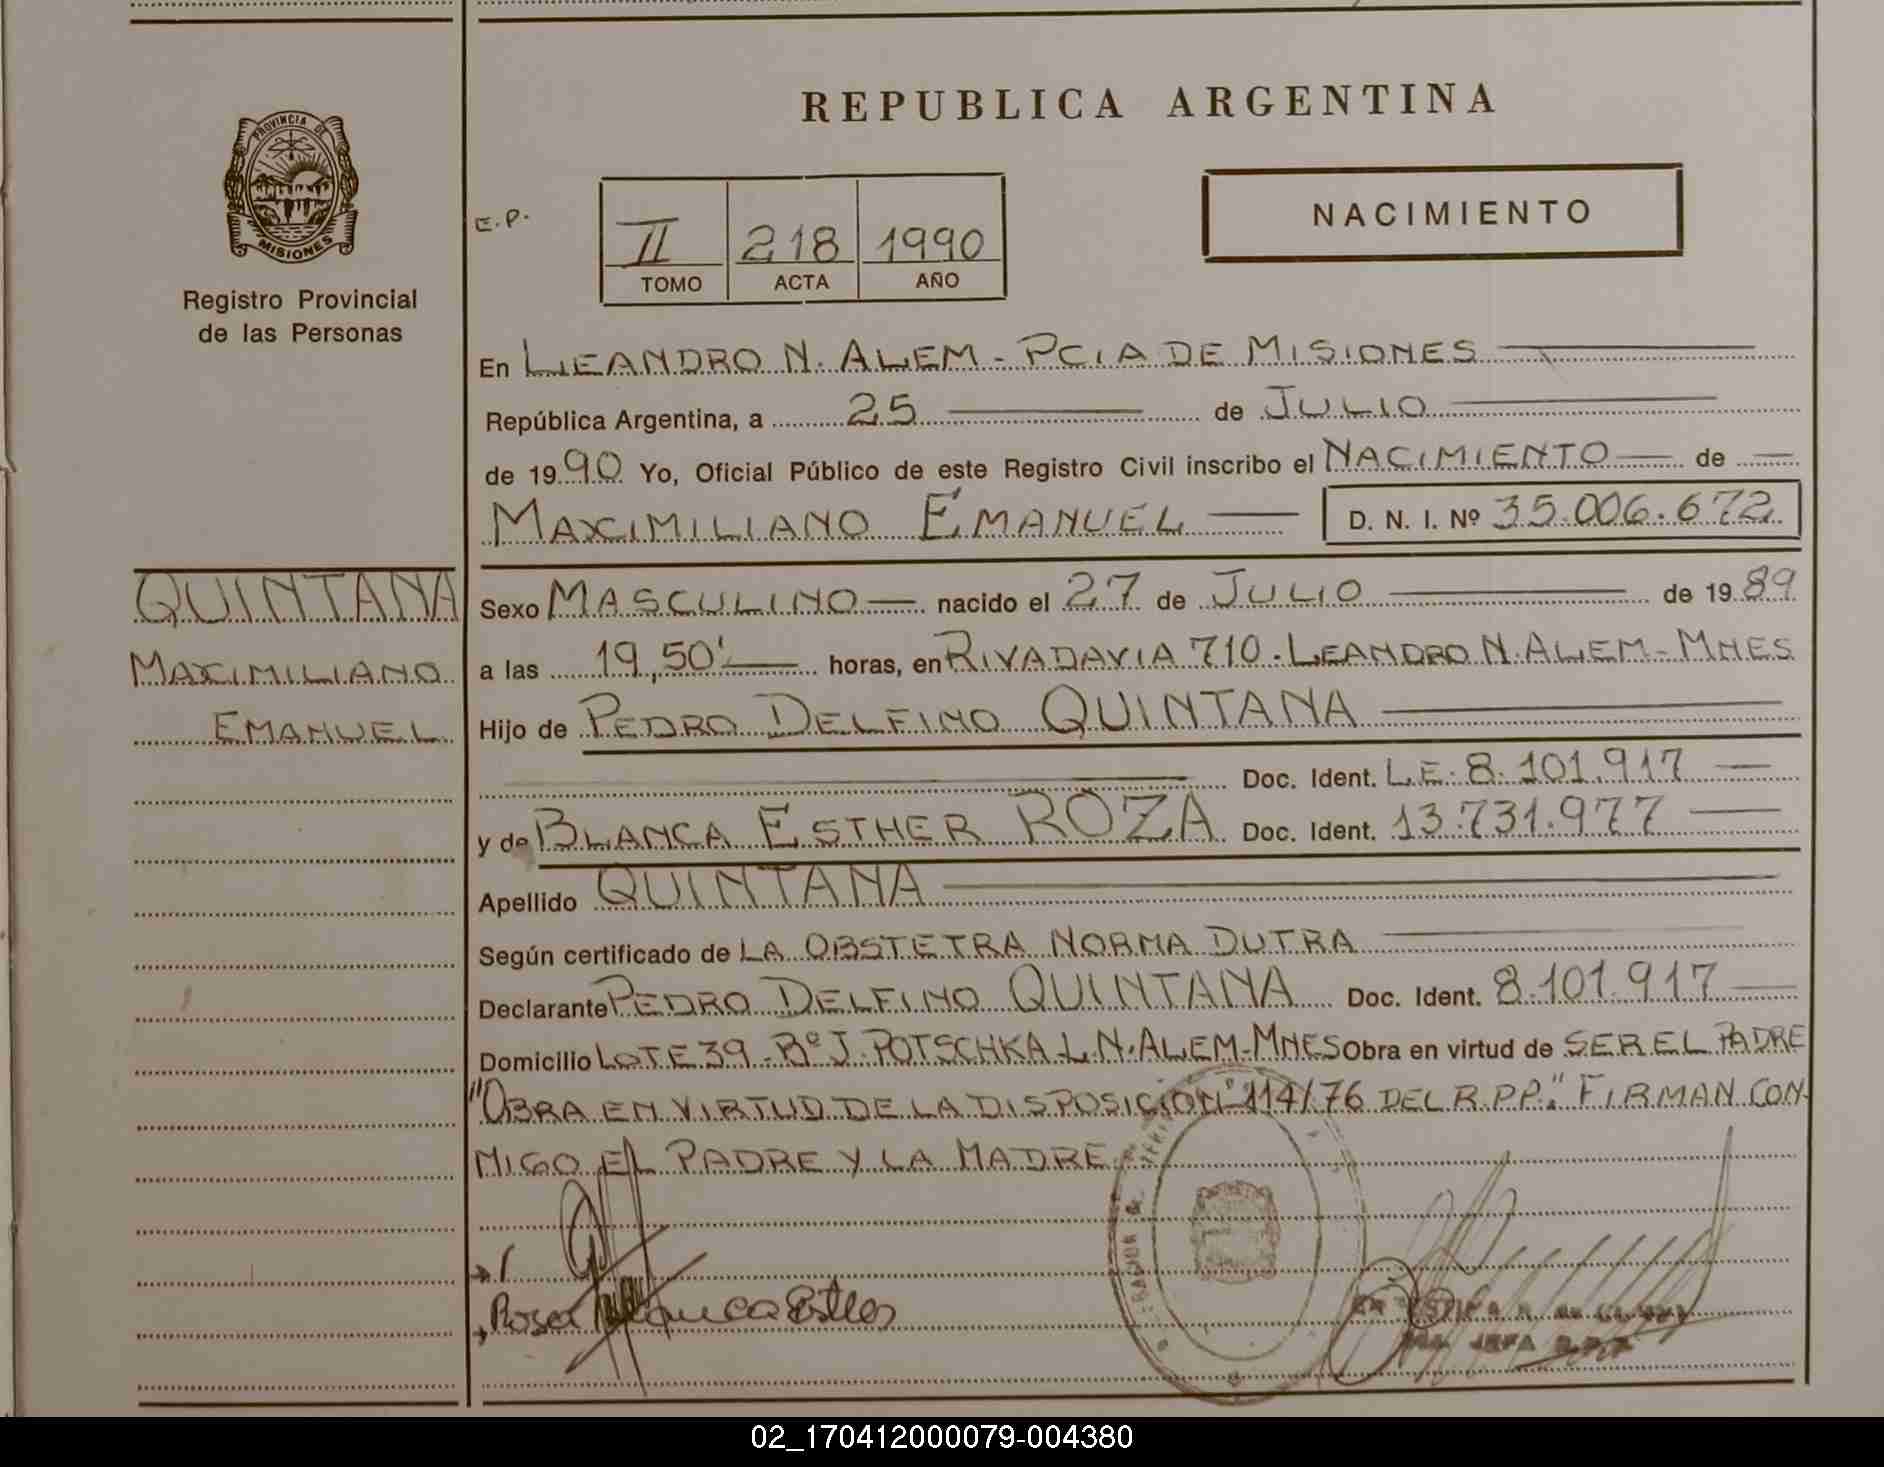 REPUBLICA ARGENTINA
PROVINCIA DE
MISIONES
Registro Provincial
de las Personas
E.P.
II 218 1990
TOMO ACTA AÑO
NACIMIENTO
En LEANDRO N. ALEM - PCIA DE MISIONES
República Argentina, a 25 de JULIO
de 1990 Yo, Oficial Público de este Registro Civil inscribo el NACIMIENTO de
MAXIMILIANO EMANUEL D. N. I. Nº 35.006.672
QUINTANA
MAXIMILIANO
EMANUEL
Sexo MASCULINO nacido el 27 de JULIO de 1989
a las 19,50' horas, en RIVADAVIA 710. LEANDRO N. ALEM - MNES
Hijo de PEDRO DELFINO QUINTANA
Doc. Ident. L.E. 8.101.917
y de BLANCA ESTHER ROZA Doc. Ident. 13.731.977
Apellido QUINTANA
Según certificado de LA OBSTETRA NORMA DUTRA
Declarante PEDRO DELFINO QUINTANA Doc. Ident. 8.101.917
Domicilio LOTE 39 - Bº J. POTSCHKA L.N. ALEM - MNES Obra en virtud de SER EL PADRE
"OBRA EN VIRTUD DE LA DISPOSICION Nº 114/76 DEL R.P.P." FIRMAN CON-
MIGO EL PADRE Y LA MADRE
JEFA
02_170412000079-004380